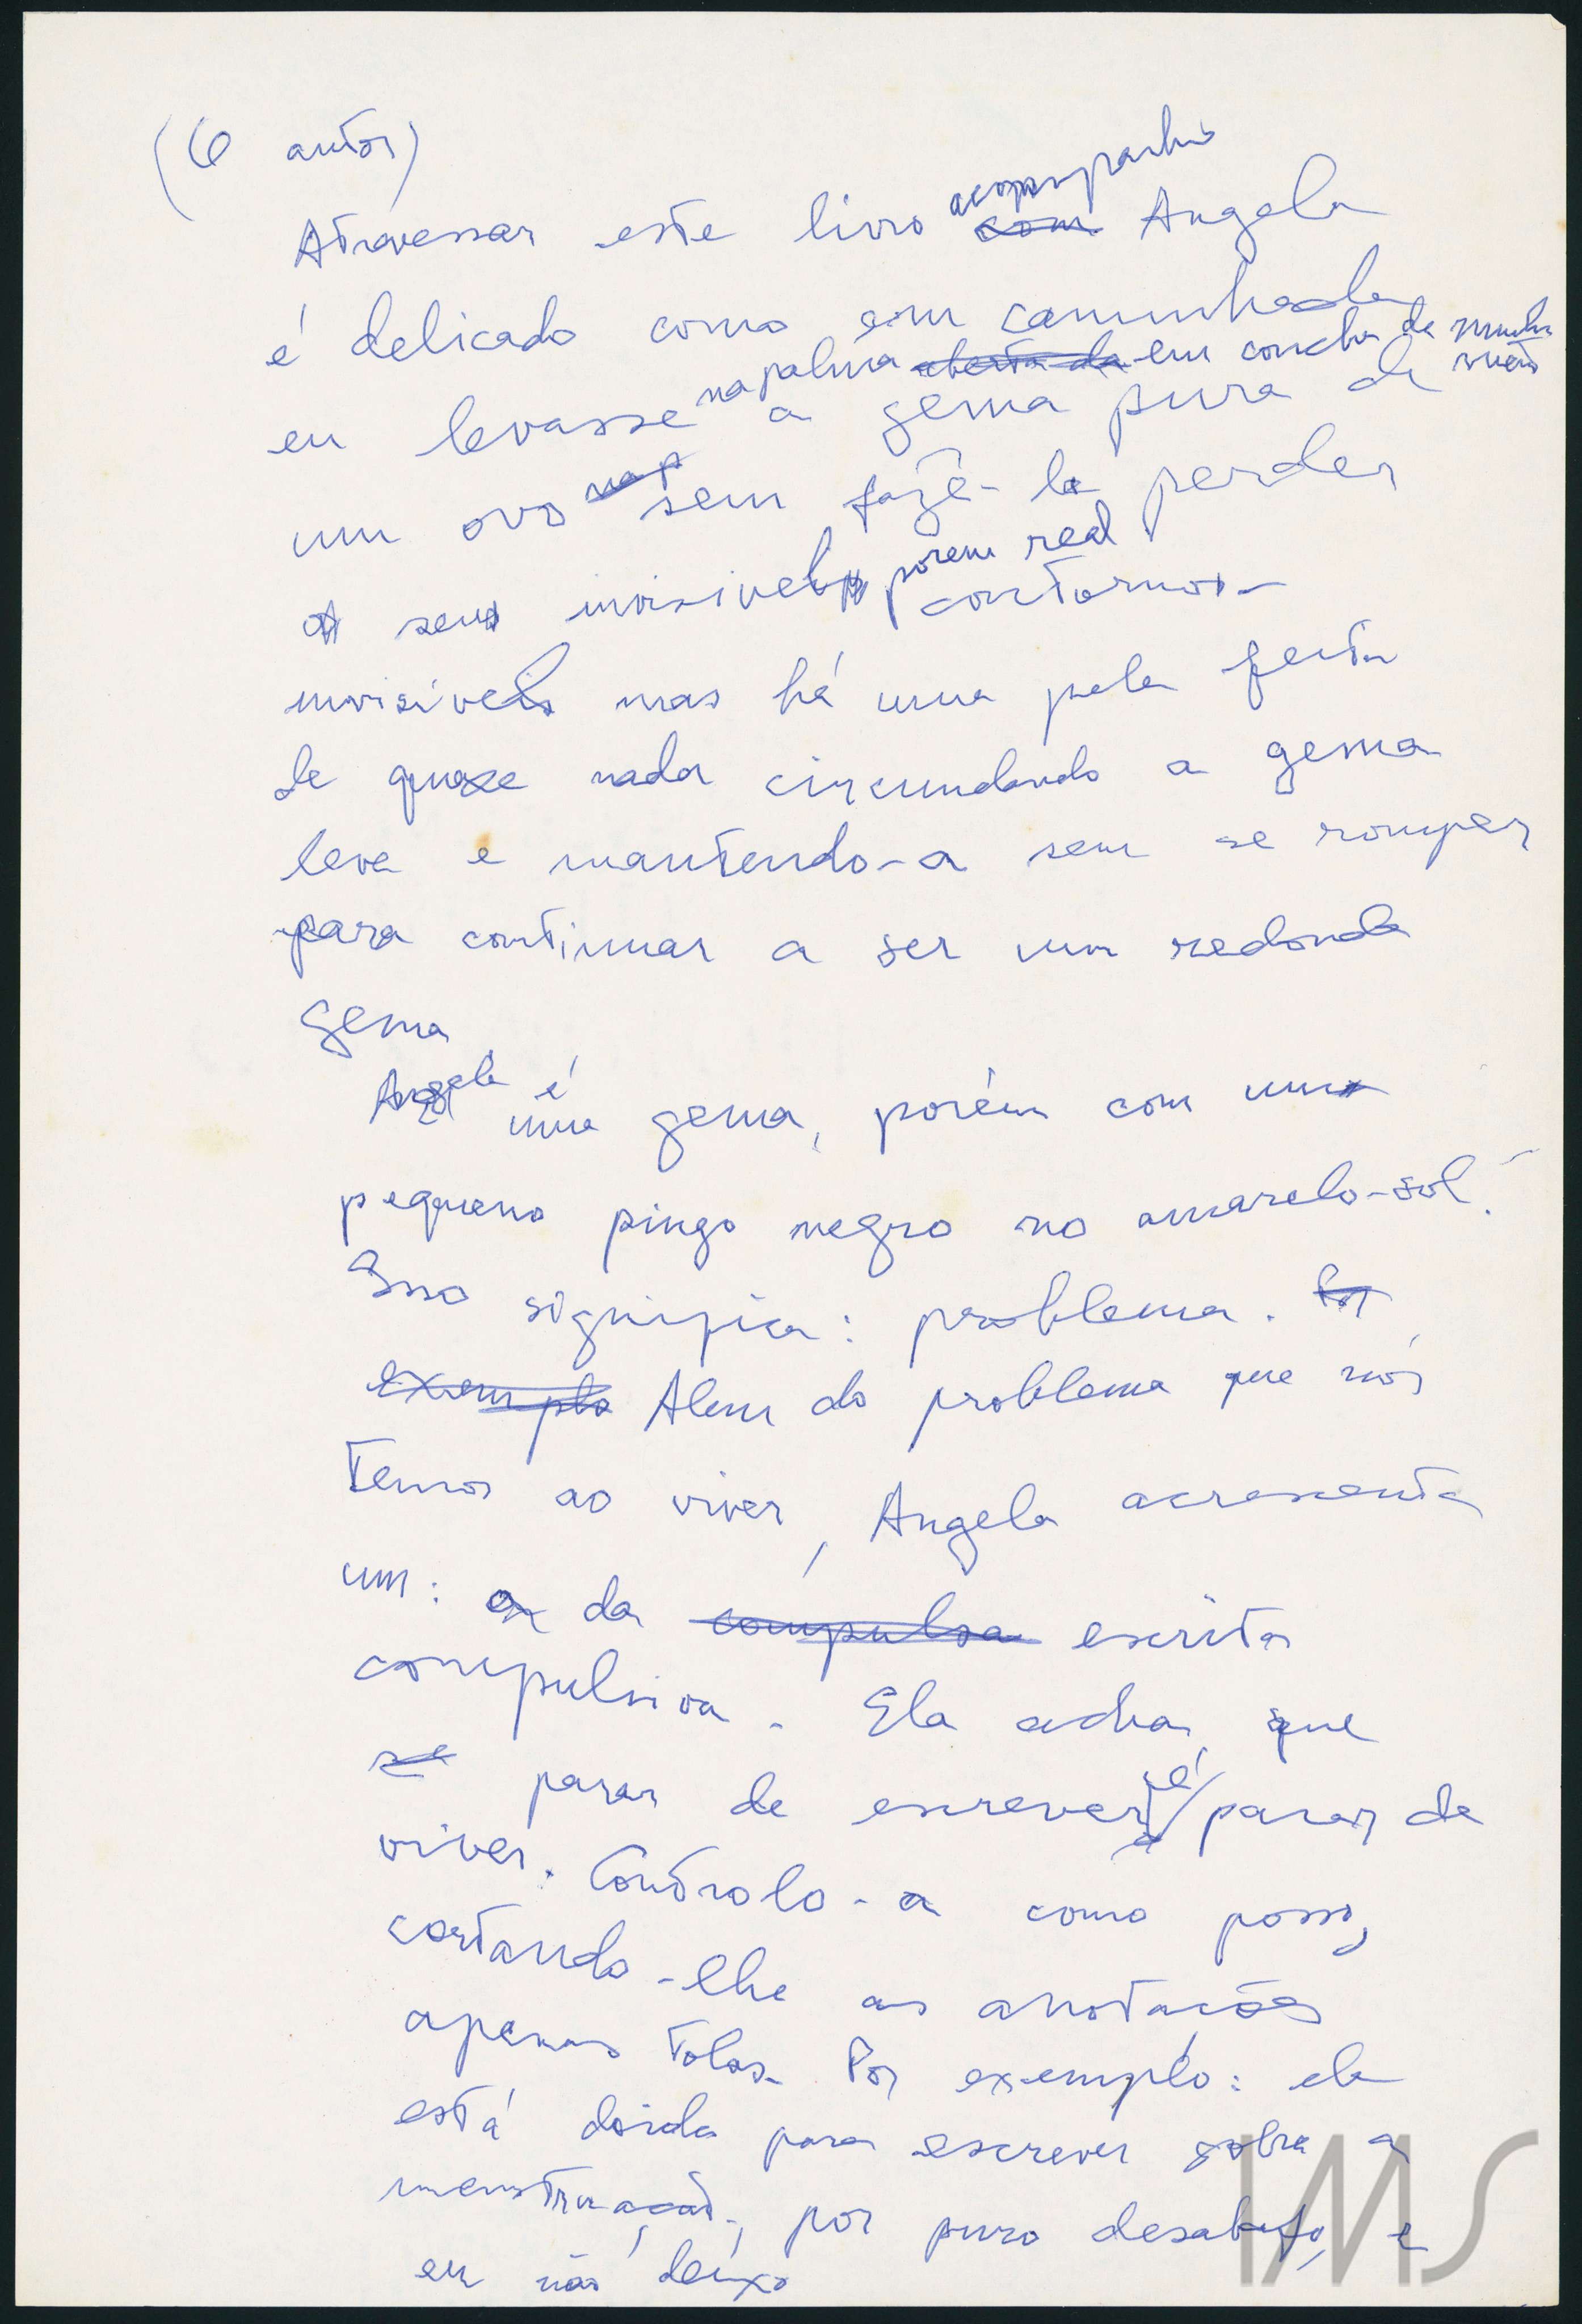 (O autor)
Atravessar este livro acompanhando com Angela
é delicado como em caminhada
eu levasse na palma aberta da em concha da minha mão a gema pura de
um ovo na p sem fazê-la perder
o seu invisível porem real contorno –
invisível mas há uma pele feita
de quase nada circundando a gema
leve e mantendo-a sem se romper
para continuar a ser um redonda
gema
Angela é uma gema, porém com um
pequeno pingo negro no amarelo-sol.
Isso significa: problema. Por
exemplo Alem do problema que nós
temos ao viver, Angela acrescenta
um: o da compulsa escrita
compulsiva. Ela acha que
se parar de escrever é parar de
viver. Controlo-a como posso,
cortando-lhe as anotações
apenas tolas. Por exemplo: ela
está doida para escrever sobre a
menstruação, por puro desabafo, e
eu não deixo
IMS